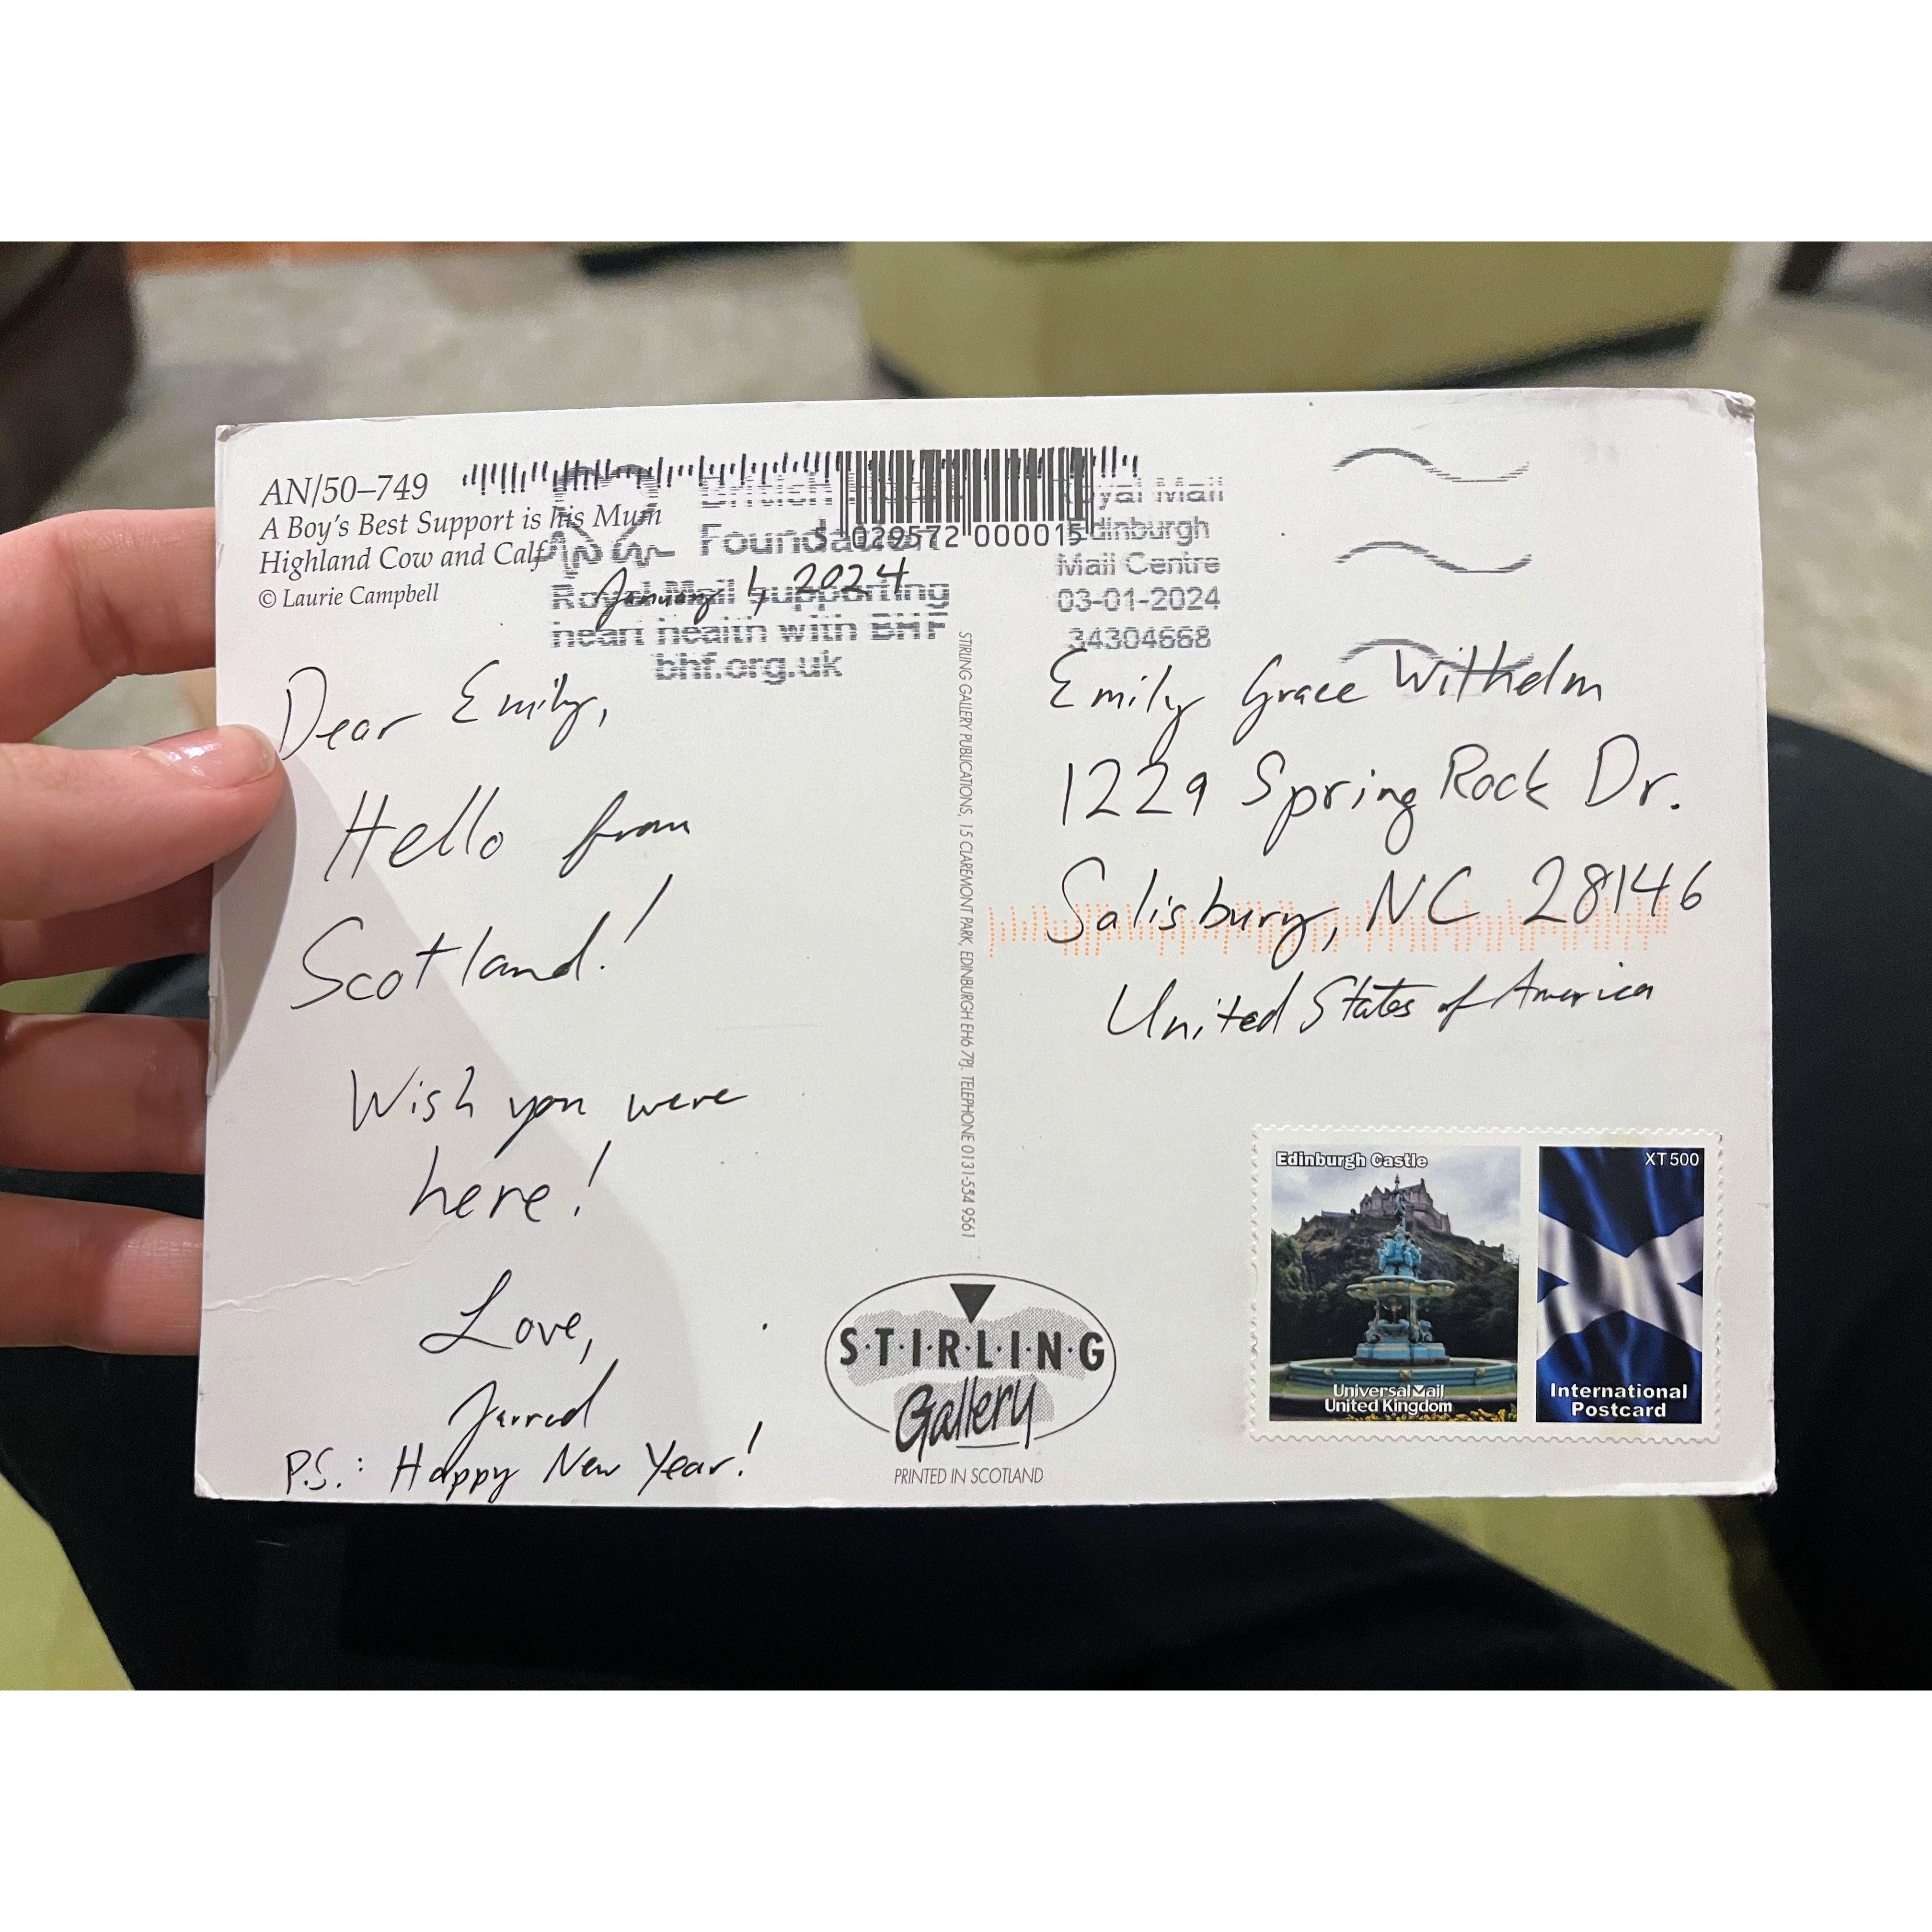 AN/50–749
A Boy's Best Support is his Mum
Highland Cow and Calf
© Laurie Campbell
British
Foundation
Royal Mail supporting
heart health with BHF
bhf.org.uk
5 029572 000015
Royal Mail
Edinburgh
Mail Centre
03-01-2024
34304668
January 1, 2024
Dear Emily,
Hello from
Scotland!
Wish you were
here!
Love,
Jarrod
P.S.: Happy New Year!
STIRLING GALLERY PUBLICATIONS, 15 CLAREMONT PARK, EDINBURGH EH6 7PJ. TELEPHONE 0131-554 9561
S·T·I·R·L·I·N·G
Gallery
PRINTED IN SCOTLAND
Emily Grace Wilhelm
1229 Spring Rock Dr.
Salisbury, NC 28146
United States of America
Edinburgh Castle
UniversalMail
United Kingdom
XT500
International
Postcard